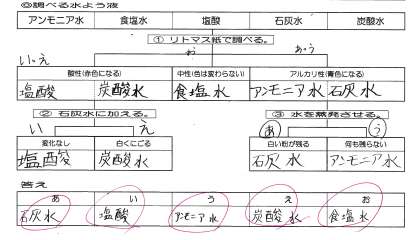 ◎調べる水よう液
アンモニア水 食塩水 塩酸 石灰水 炭酸水
① リトマス紙で調べる。
い・え お あ・う
酸性(赤色になる) 中性(色は変わらない) アルカリ性(青色になる)
塩酸 炭酸水 食塩水 アンモニア水 石灰水
② 石灰水に加える。 ③ 水を蒸発させる。
い え あ う
変化なし 白くにごる 白い粉が残る 何も残らない
塩酸 炭酸水 石灰水 アンモニア水
答え
あ い う え お
石灰水 塩酸 アンモニア水 炭酸水 食塩水